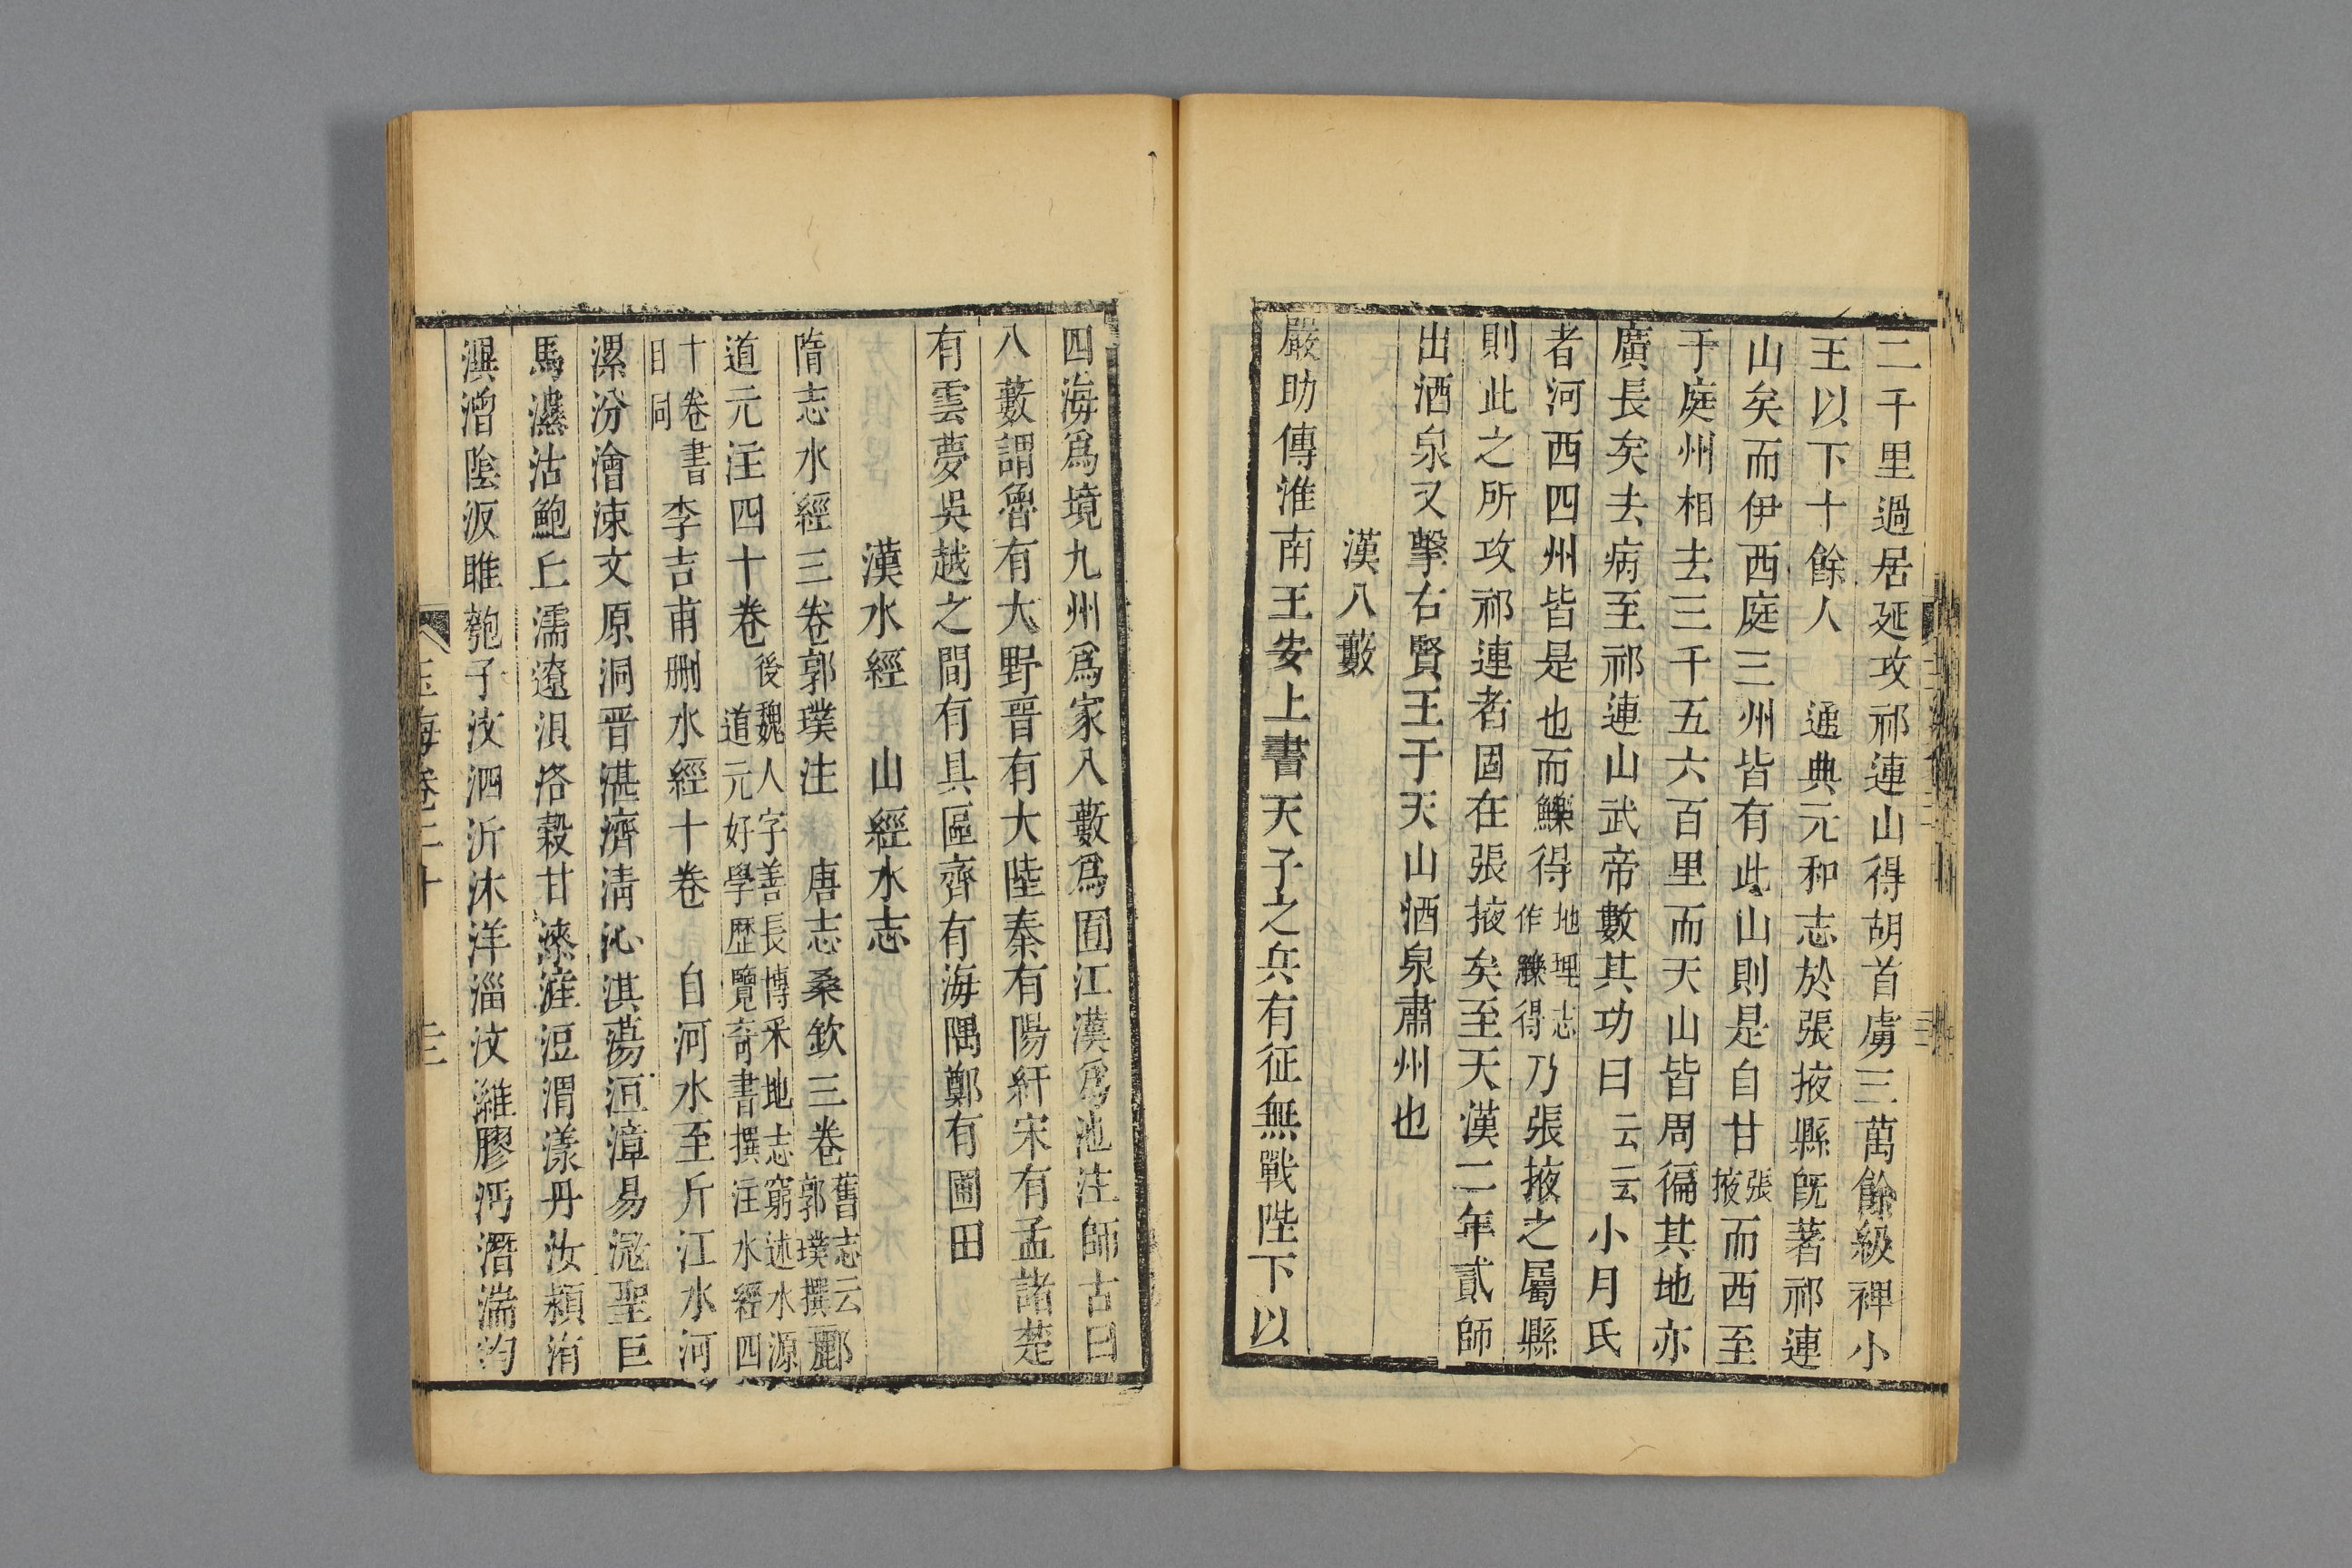 二千里過居延攻祁連山得胡首虜三萬餘級裨小
王以下十餘人 通典元和志於張掖縣旣著祁連
山矣而伊西庭三州皆有此山則是自甘張掖而西至
于庭州相去三千五六百里而天山皆周徧其地亦
廣長矣去病至祁連山武帝數其功曰云云小月氏
者河西四州皆是也而鱳得地理志作觻得乃張掖之屬縣
則此之所攻祁連者固在張掖矣至天漢二年貳師
出酒泉又擊右賢王于天山酒泉肅州也
漢八藪
嚴助傳淮南王安上書天子之兵有征無戰陛下以
四海爲境九州爲家八藪爲囿江漢爲池注師古曰
八藪謂魯有大野晉有大陸秦有陽紆宋有孟諸楚
有雲夢吳越之間有具區齊有海隅鄭有圃田
漢水經 山經水志
隋志水經三卷郭璞注 唐志桑欽三卷舊志云郭璞撰酈
道元注四十卷後魏人字善長博采地志窮述水源道元好學歷覽奇書撰注水經四
十卷書目同 李吉甫刪水經十卷 自河水至斤江水河
漯汾澮涑文原洞晉湛濟淸沁淇蕩洹漳易滱聖巨
馬㶟沽鮑丘濡遼浿洛穀甘漆滻沮渭漾丹汝潁洧
潩潧陰汳睢瓠子汶泗沂沭洋淄汶濰膠沔潛湍均
玉海卷二十